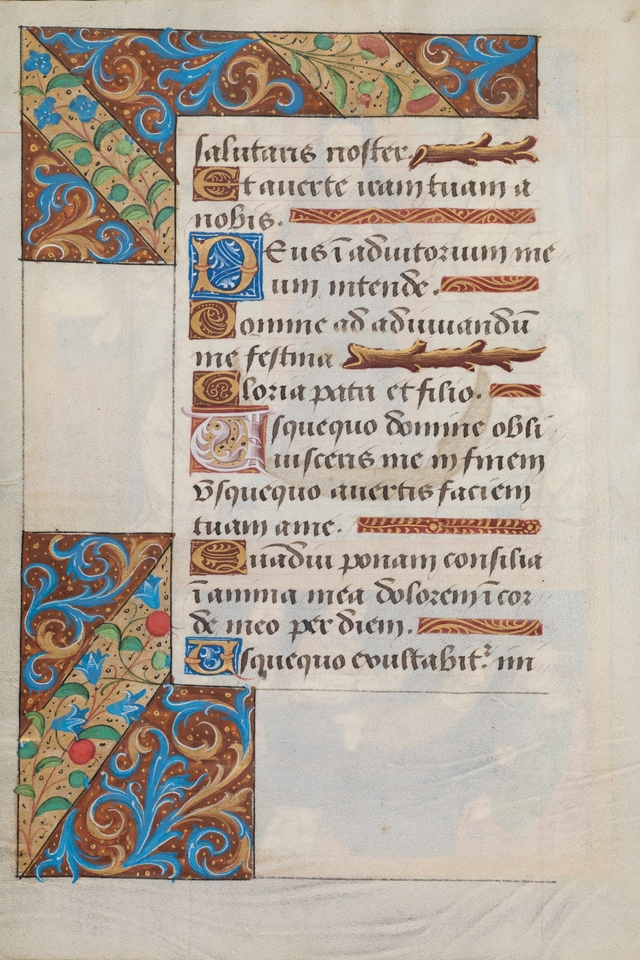 salutaris noster
Et auerte iram tuam a
nobis.
Deus ī adiutorium me
um intende.
Domine ad adiuuandū
me festina
Gloria patri et filio.
Usquequo domine obli
uisceris me in finem
vsquequo auertis faciem
tuam a me.
Quādiu ponam consilia
ī anima mea dolorem ī cor
de meo per diem.
Usquequo exultabit: ini